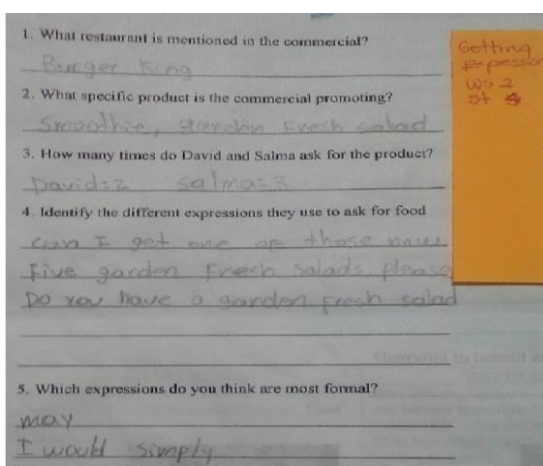 1. What restaurant is mentioned in the commercial?
Burger King
2. What specific product is the commercial promoting?
Smoothie, Garden Fresh salad
3. How many times do David and Salma ask for the product?
David: 2 Salma: 3
4. Identify the different expressions they use to ask for food
can I get one of those now
Five garden Fresh Salads, please
Do you have a garden Fresh salad
5. Which expressions do you think are most formal?
may
I would simply
Getting
WS 2
St